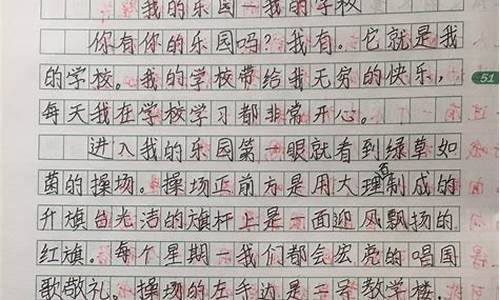 我的乐园—我的学校
你有你的乐园吗？我有。它就是我
的学校。我的学校带给我无穷的快乐，
每天我在学校学习都非常开心。
进入我的乐园第一眼就看到绿草如
茵的操场。操场正前方是用大理石制成的
升旗台光洁的旗杆上是一面迎风飘扬的
红旗。每个星期一我们都会宏亮的唱国
歌敬礼。操场的左手边是二号教学楼，
51